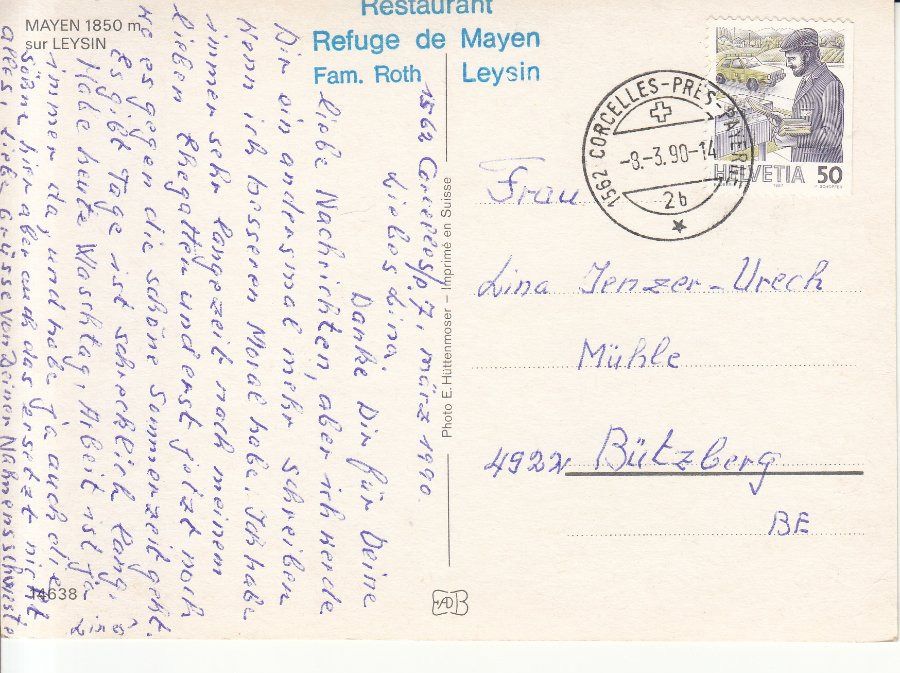 MAYEN 1850 m
sur LEYSIN
Restaurant
Refuge de Mayen
Fam. Roth Leysin
1562 Corcelles/p. 7. März 1990.
Liebes Lina,
Danke Dir für Deine
liebe Nachrichten, aber ich werde
Dir ein andersmal mehr schreiben
Wenn ich besseren Moral habe. Ich habe
immer sehr Langezeit nach meinem
lieben Ehegatten und erst jetzt noch
wo es gegen die schöne Sommerzeit geht.
Es gibt Tage ist schrecklich lang.
Habe heute Waschtag, Arbeit ist ja
immer da, und habe ja auch die
Söhn hier aber auch das ersetzt nicht
alles, Liebe Grüsse von Deiner Nahmensschweste
Linès
14638
Photo E. Hüttenmoser – Imprimé en Suisse
1562 CORCELLES-PRÈS-PAYERNE
-8.-3.90-14
2b
HELVETIA 50
Frau
Lina Jenzer-Urech
Mühle
4922 Bützberg
BE